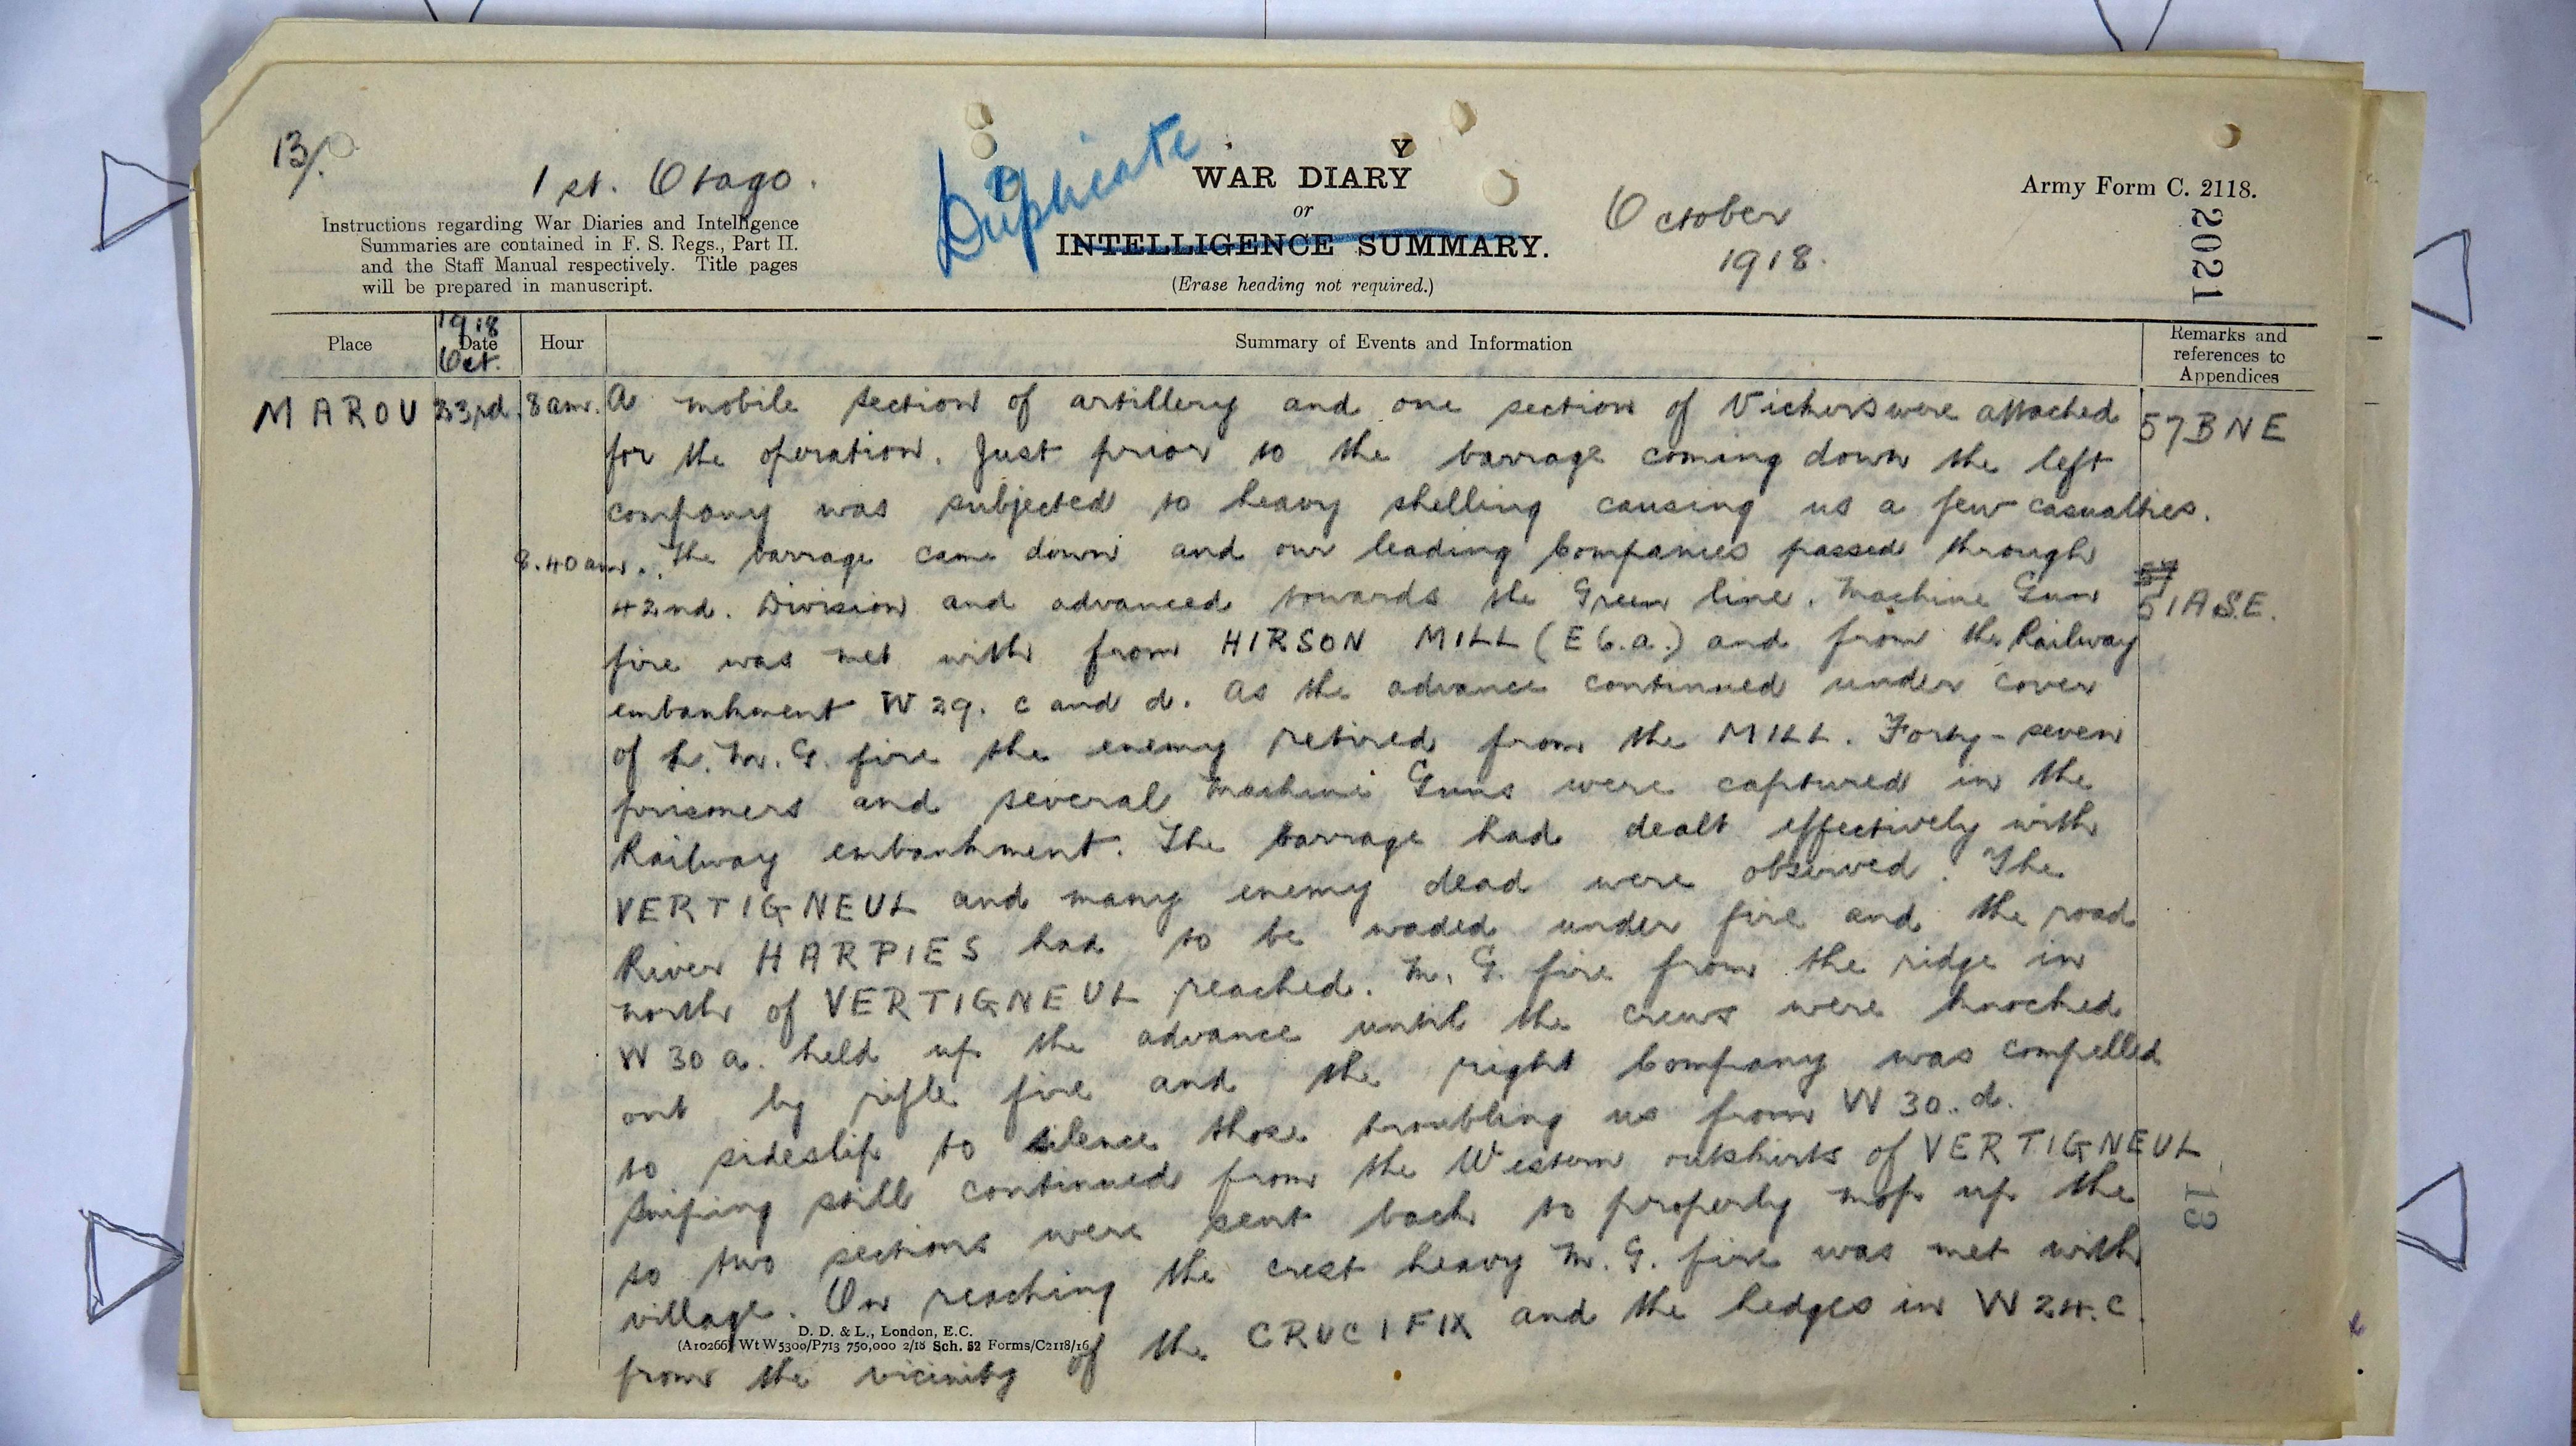 13/.
1st. Otago.
Duplicate
Y
WAR DIARY
or
INTELLIGENCE SUMMARY.
(Erase heading not required.)
October
1918.
Army Form C. 2118.
2021
Instructions regarding War Diaries and Intelligence
Summaries are contained in F. S. Regs., Part II.
and the Staff Manual respectively. Title pages
will be prepared in manuscript.
Place
1918
Date
Oct.
Hour
Summary of Events and Information
Remarks and
references to
Appendices
MAROU 23rd. 8 am. A mobile section of artillery and one section of Vickers were attached 57BNE
for the operation. Just prior to the barrage coming down the left
company was subjected to heavy shelling causing us a few casualties.
8.40 am. The barrage came down and our leading Companies passed through
42nd. Division and advanced towards the Green line. Machine Gun 51A S.E.
fire was met with from HIRSON MILL (E6.a.) and from the Railway
embankment W 29. c and d. As the advance continued under cover
of L. M. G. fire the enemy retired from the MILL. Forty-seven
prisoners and several Machine Guns were captured in the
Railway embankment. The barrage had dealt effectively with
VERTIGNEUL and many enemy dead were observed. The
River HARPIES had to be waded under fire and the road
north of VERTIGNEUL reached. M. G. fire from the ridge in
W 30 a. held up the advance until the crews were knocked
out by rifle fire and the right Company was compelled
to sideslip to silence those troubling us from W 30. d.
Sniping still continued from the Western outskirts of VERTIGNEUL
so two sections were sent back to properly mop up the
village. On reaching the crest heavy M. G. fire was met with
from the vicinity of the CRUCIFIX and the hedges in W 24. c
13
D. D. & L., London, E.C.
(A10266) Wt W5300/P713 750,000 2/18 Sch. 52 Forms/C2118/16